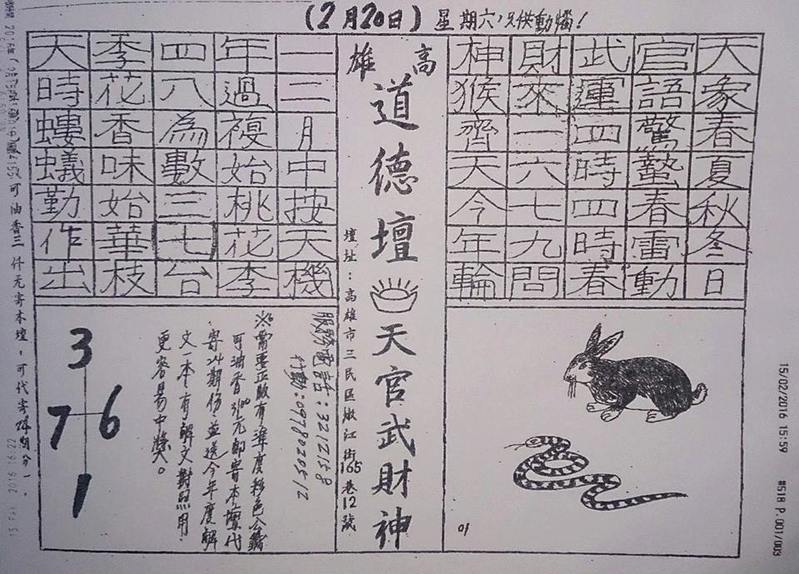 (2月20日)星期六,只供動惱!
天象春夏秋冬日
官語驚蟄春雷動
武運四時四時春
財來一六七九問
神猴齊天今年輪
高雄
道德壇
天官武財神
壇址:高雄市三民區嫩江街165巷12號
一二月中按天機
年過複始桃花李
四八為數三七台
季花香味始華枝
天時螻蟻勤作出
服務電話:3212158
行動:0978020512
※需要正版有準度彩色公籤
可油香3100元即寄本壇代
寄24期份並送今年度解
文一本有解文對照用.
更容易中獎。
3
7 6
1
01
可油香三仟元寄本壇,可代寄24期份
15/02/2016 15:59
#518 P.001/003